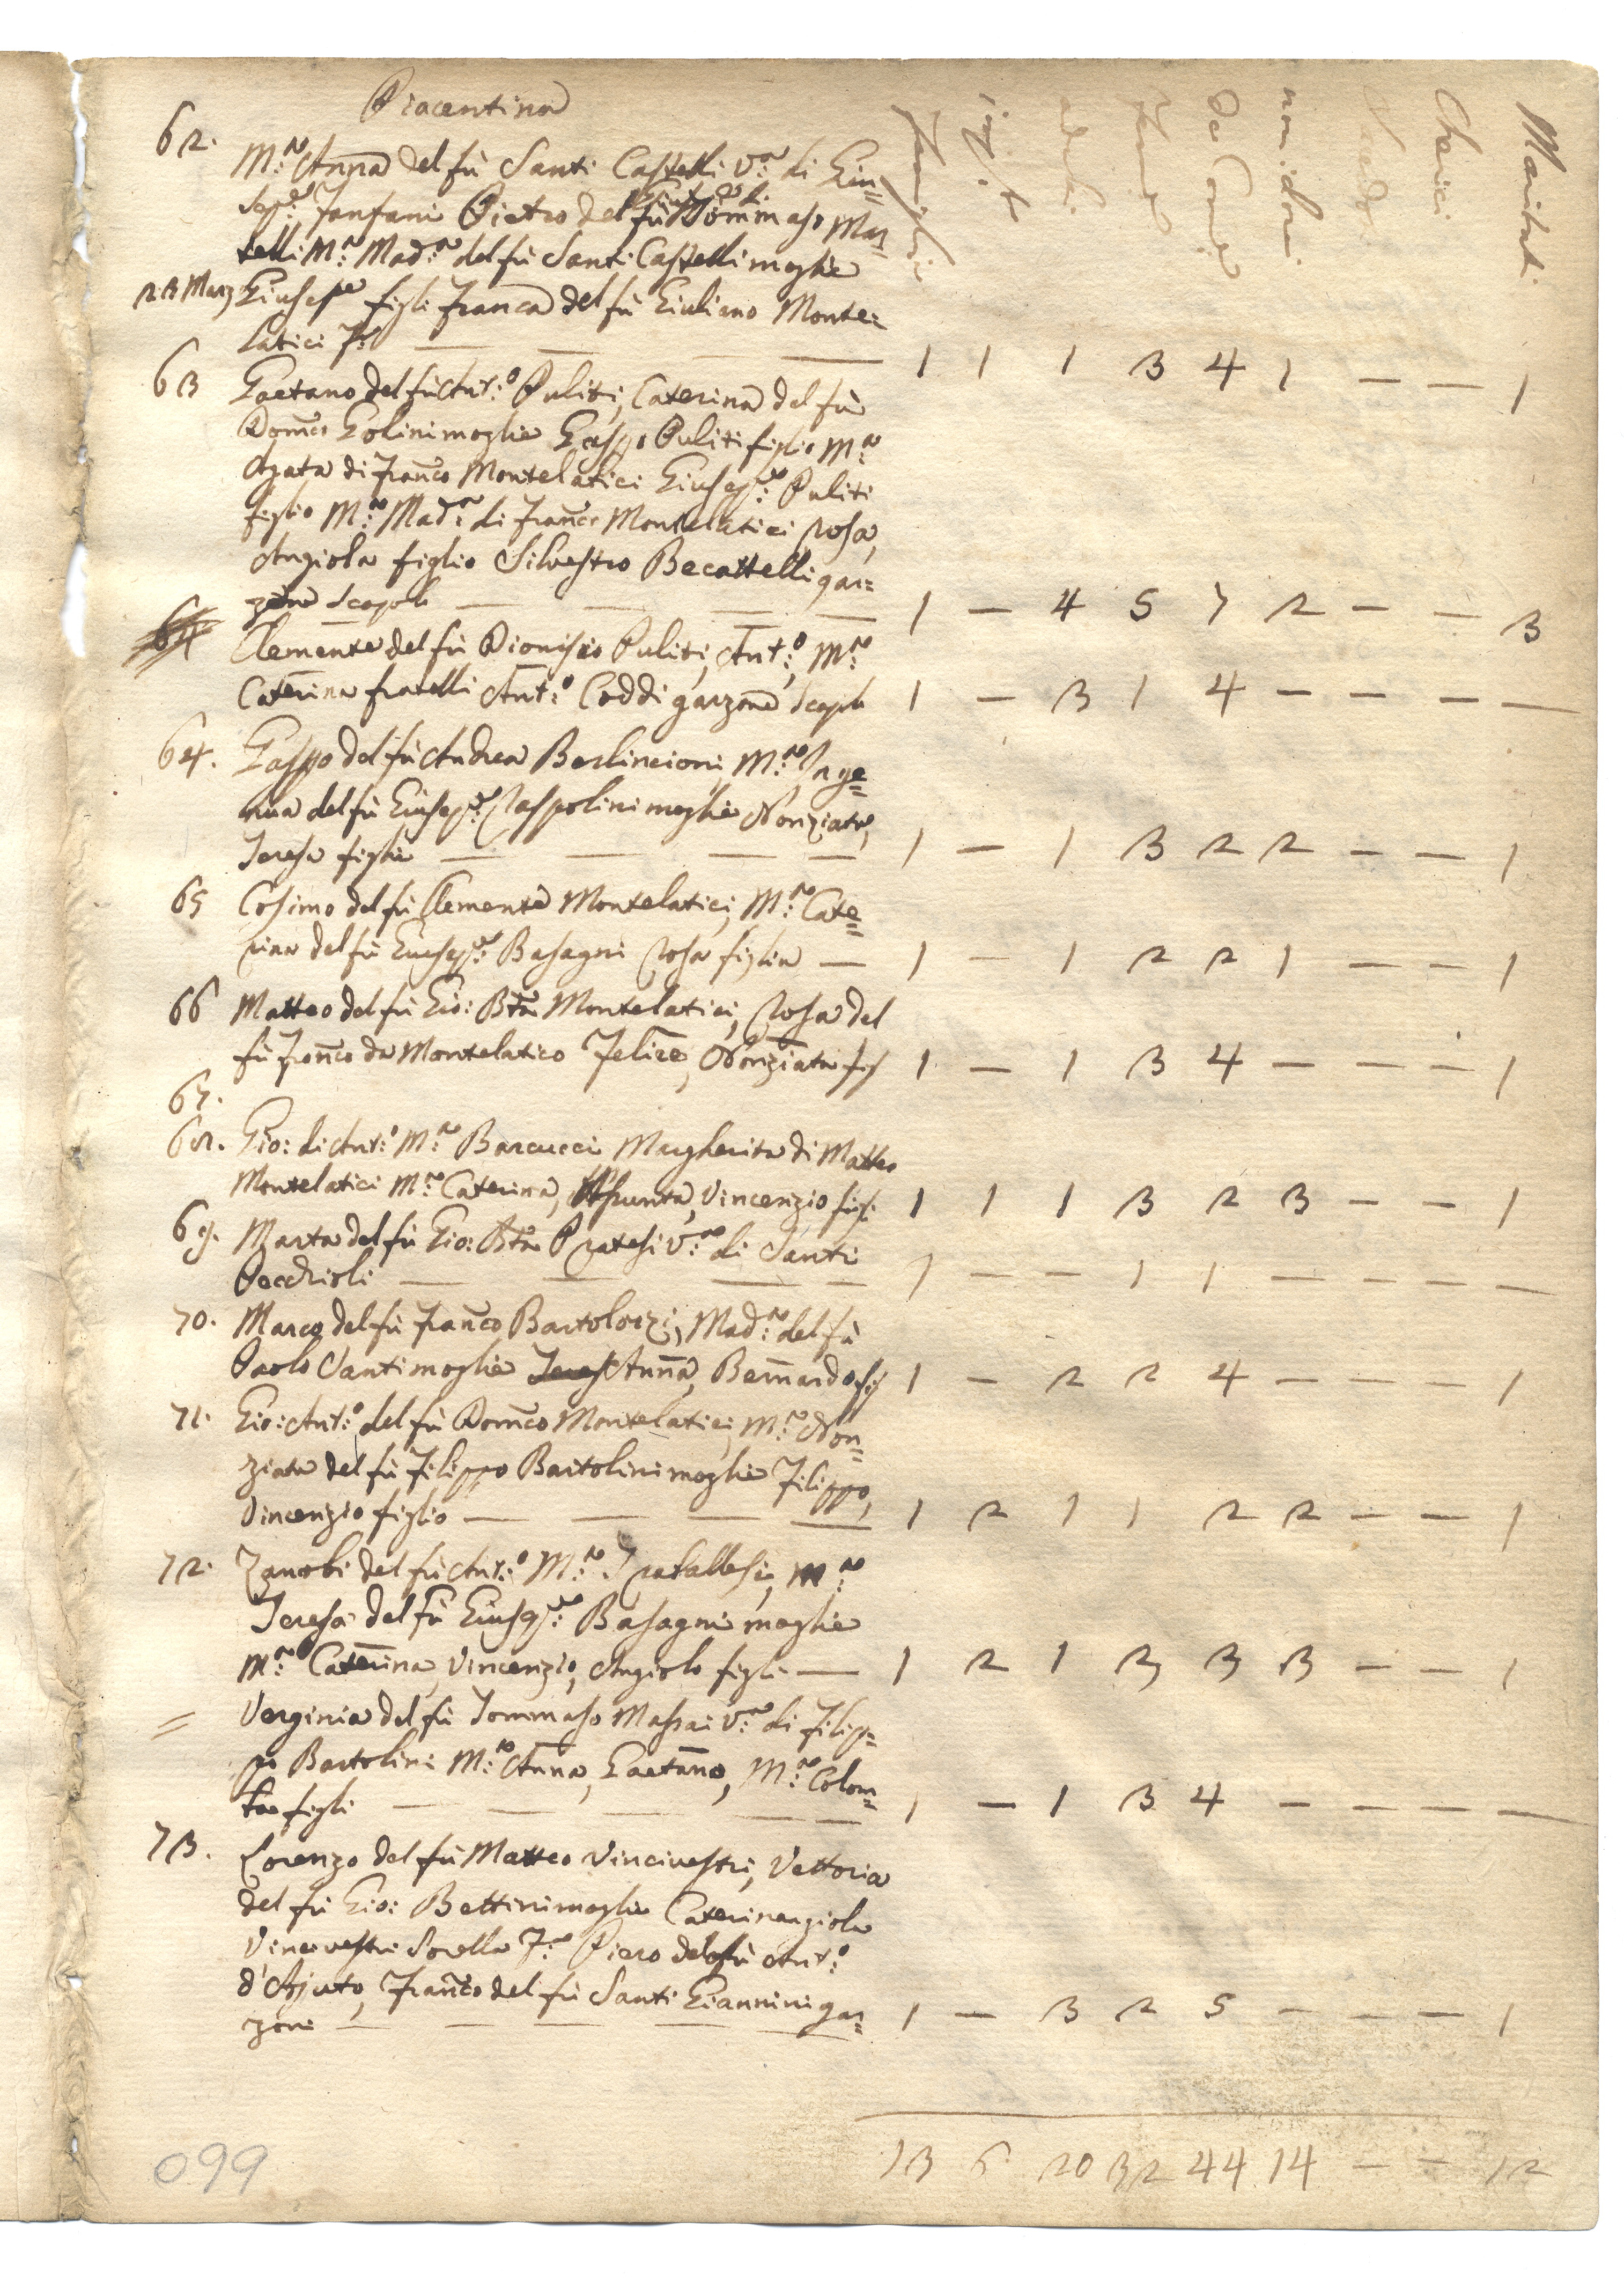 Piacentina
Famiglie
adulti
femine
da Comune
non idonei
Cherici
Maritati
62. M:ª Anna del fù Santi Castelli V:ª di Giu=
sep:e Fanfani Pietro del fù Tommaso Mar=
telli M:ª Mad:ª del fù Santi Castelli moglie
23 Marz Giuseppe figli Franca del fù Giuliano Monte=
latici F: — — — 1 1 1 3 4 1 — — 1
63 Gaetano del fù Ant:º Puliti, Caterina del fù
Domco Golini moglie Gaspo Puliti figlio M:ª
Agata di Franco Montelatici Giusep:e Puliti
figlio M:ª Mad:ª di Franco Montelatici Rosa,
Angiola figlio Silvestro Becattelli gar=
zone Scapoli — — — — 1 — 4 5 7 2 — — 3
64 Clemente del fù Dionisio Puliti, Ant:º, M:ª
Caterina fratelli Ant:º Coddi garzone Scapli 1 — 3 1 4 — — — —
64. Gaspo del fù Andrea Berlincioni, M:ª Inge=
nua del fù Giusep:e Raspolini moglie Nonziata,
Teresa figlie — — — — 1 — 1 3 2 2 — — 1
65 Cosimo del fù Clemente Montelatici, M:ª Cate=
rina del fù Giusep:e Basagni Rosa figlia — 1 — 1 2 2 1 — — 1
66 Matteo del fù Gio: Bta Montelatici, Rosa del
fù Franco da Montelatico Felice, Nonziata figl 1 — 1 3 4 — — — 1
67.
68. Gio: di Ant:º M:ª Barcucci Margherita di Matteo
Montelatici M:ª Caterina, Assunta, Vincenzio figli 1 1 1 3 2 3 — — 1
69. Marta del fù Gio: Bta Pratesi V:ª di Santi
Pecchioli — — — — 1 — — 1 1 — — — —
70. Marco del fù Franco Bartolozzi, Mad:ª del fù
Paolo Santi moglie Teres Anna, Bernardo figl 1 — 2 2 4 — — — 1
71. Gio: Ant:º del fù Domco Montelatici, M:ª Non=
ziata del fù Filippo Bartolini moglie Filippo,
Vincenzio figlio — — — — 1 2 1 1 2 2 — — 1
72. Zanobi del fù Ant:º M:ª Frafallesi, M:ª
Teresa del fù Giusep:e Basagni moglie
M:ª Caterina, Vincenzio, Angiolo figli — 1 2 1 3 3 3 — — 1
= Verginia del fù Tommaso Massai V:ª di Filip=
po Bartolini M:ª Anna, Gaetano, M:ª Colom=
ba figli — — — — — 1 — 1 3 4 — — — —
73. Lorenzo del fù Matteo Vincivestri, Vettoria
del fù Gio: Bettini moglie Caterinangiola
Vincivestri Sorella F:ª Piero del fù Ant:º
d'Ajuto, Franco del fù Santi Giannini gar=
zoni — — — — — 1 — 3 2 5 — — — 1
13 6 20 32 44 14 — — 12
099